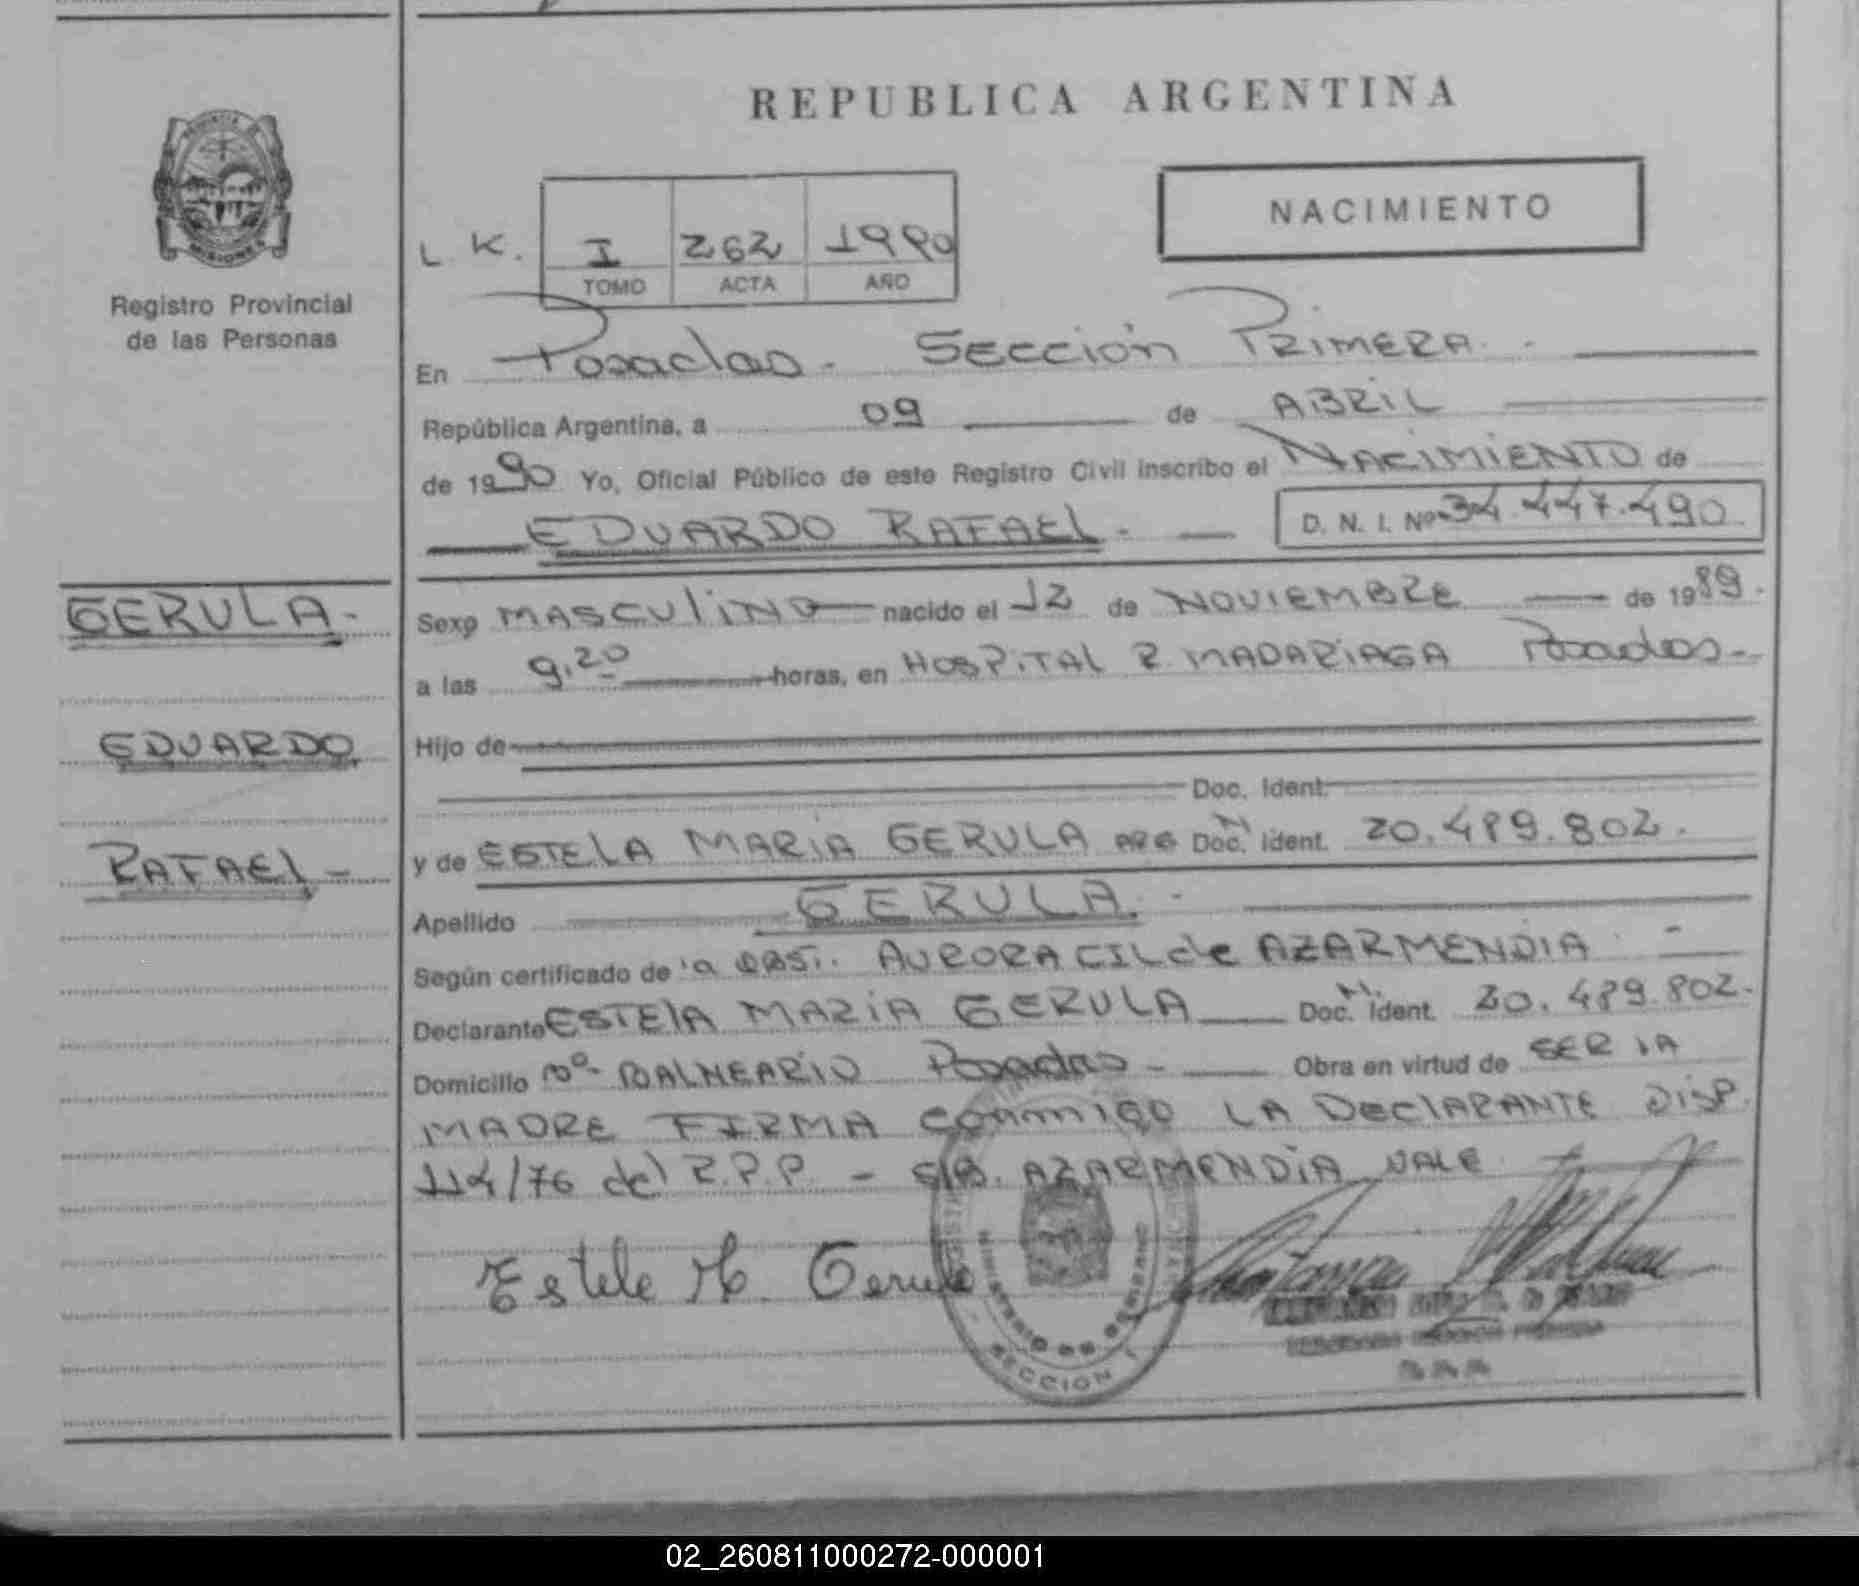 REPUBLICA ARGENTINA
NACIMIENTO
PROVINCIA DE MISIONES
Registro Provincial
de las Personas
L. K. I 262 1990
TOMO ACTA AÑO
En Posadas - Sección PRIMERA. -
República Argentina, a 09 de ABRIL
de 1990 Yo, Oficial Público de este Registro Civil inscribo el NACIMIENTO de
EDUARDO RAFAEL. - D. N. I. Nº 34.447.490
GERULA. -
EDUARDO
RAFAEL -
Sexo MASCULINO nacido el 12 de NOVIEMBRE de 1989.
a las 9.20 horas, en HOSPITAL R. MADARIAGA Posadas -
Hijo de
Doc. Ident.
y de ESTELA MARIA GERULA ARG Doc. N Ident. 20.489.802.
Apellido GERULA. -
Según certificado de la OBST. AURORA CIL de AZARMENDIA -
Declarante ESTELA MARIA GERULA Doc. N. Ident. 20.489.802.
Domicilio Bº BALNEARIO Posadas - Obra en virtud de SER LA
MADRE FIRMA conmigo LA DECLARANTE DISP.
114/76 del R.P.P. - S/B. AZARMENDIA VALE
Estela M. Gerula
MINISTERIO DE GOBIERNO
SECCION 1
02_260811000272-000001